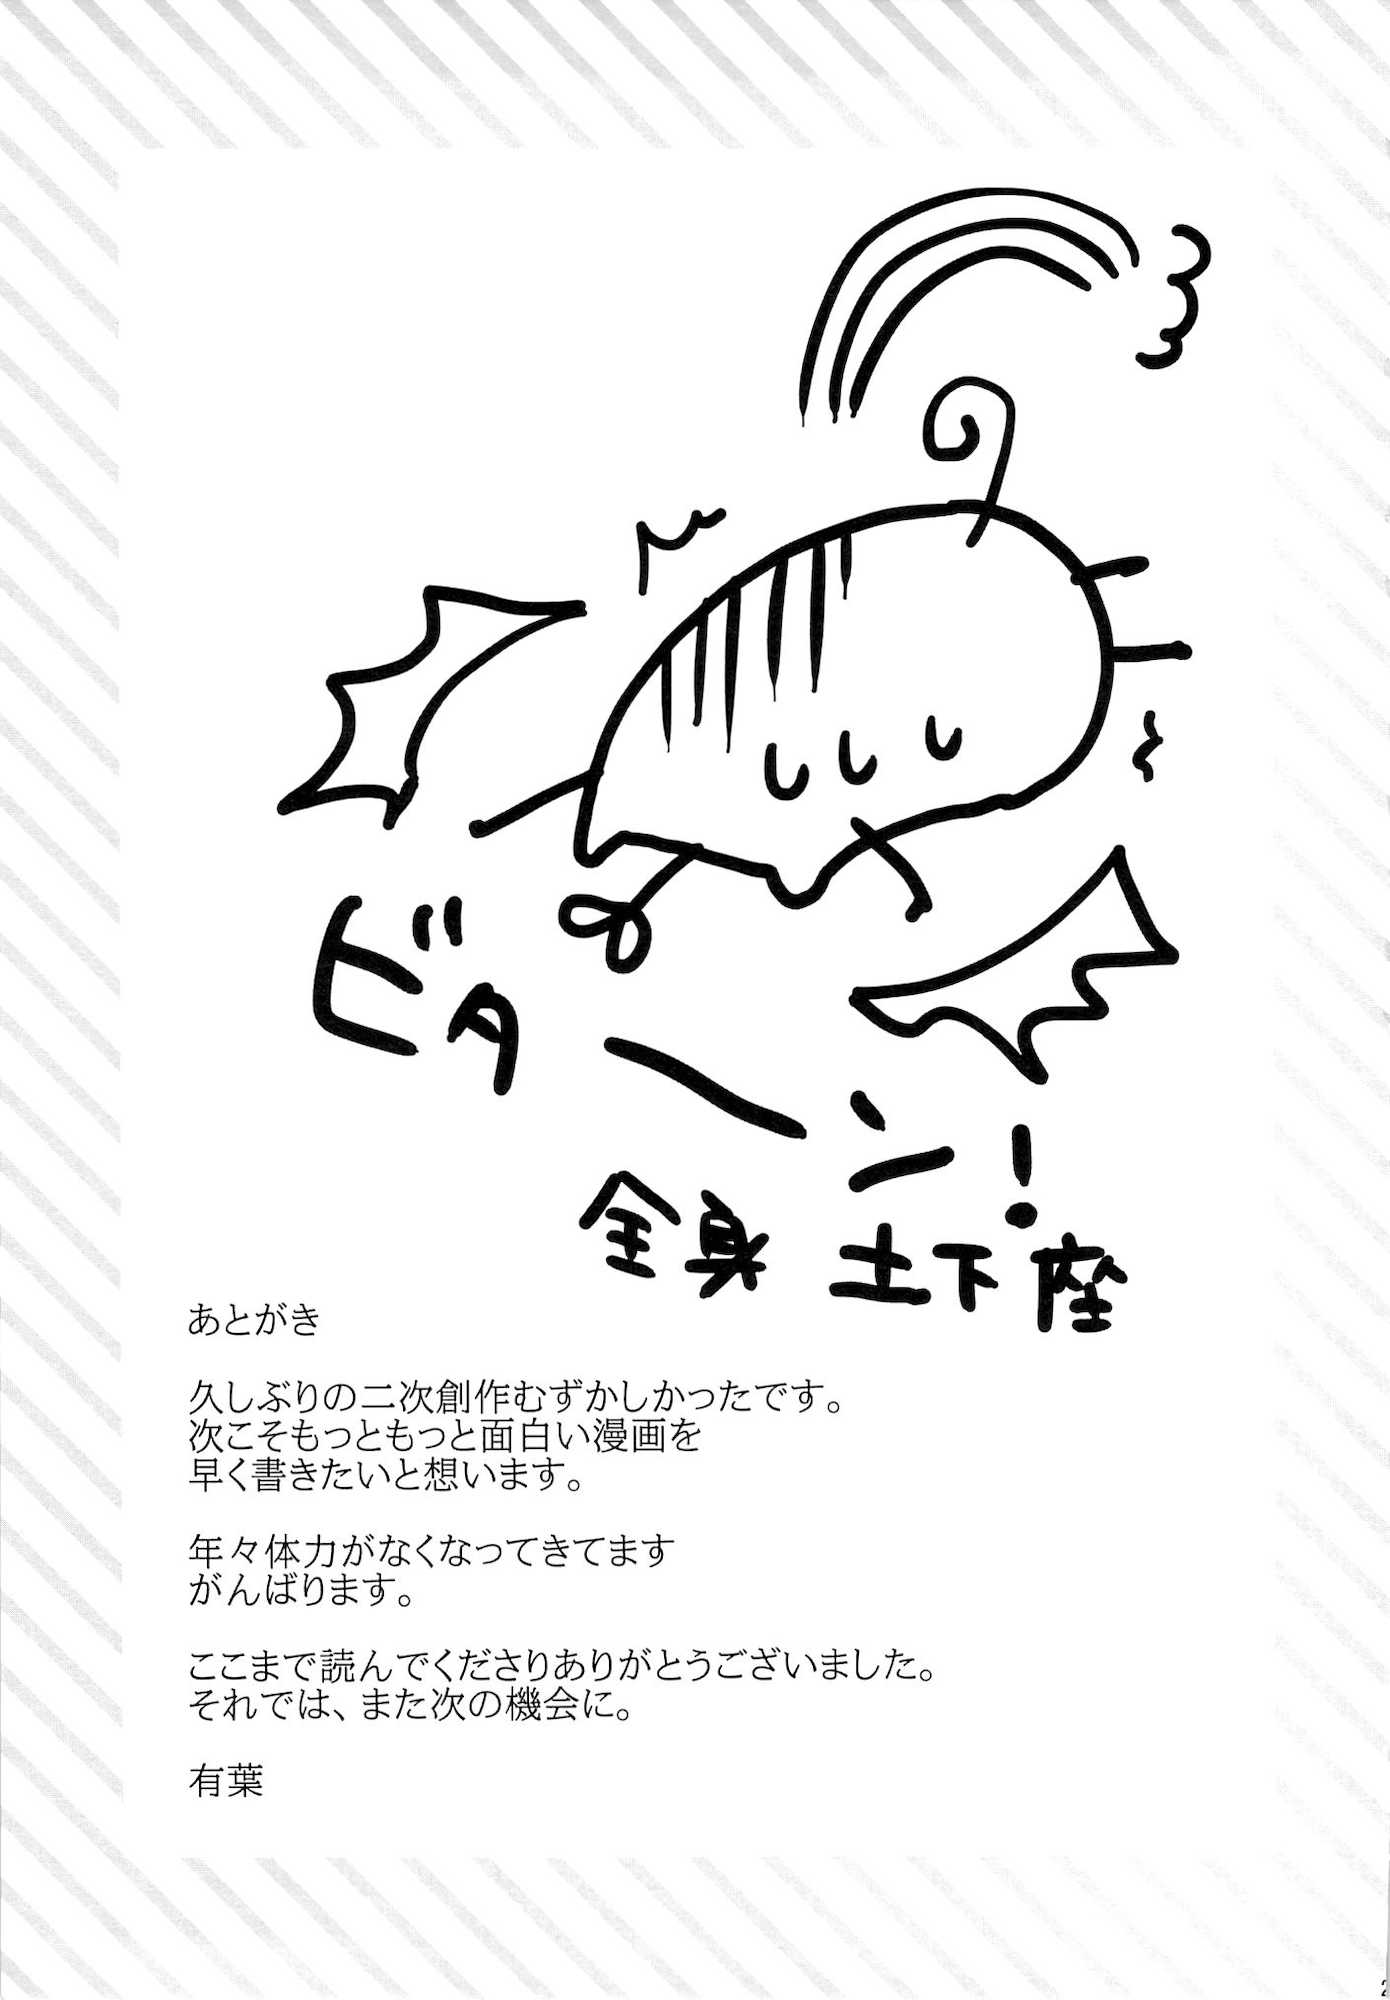 ビターン!
全身土下座
あとがき
久しぶりの二次創作むずかしかったです。
次こそもっともっと面白い漫画を
早く書きたいと想います。
年々体力がなくなってきてます
がんばります。
ここまで読んでくださりありがとうございました。
それでは、また次の機会に。
有葉